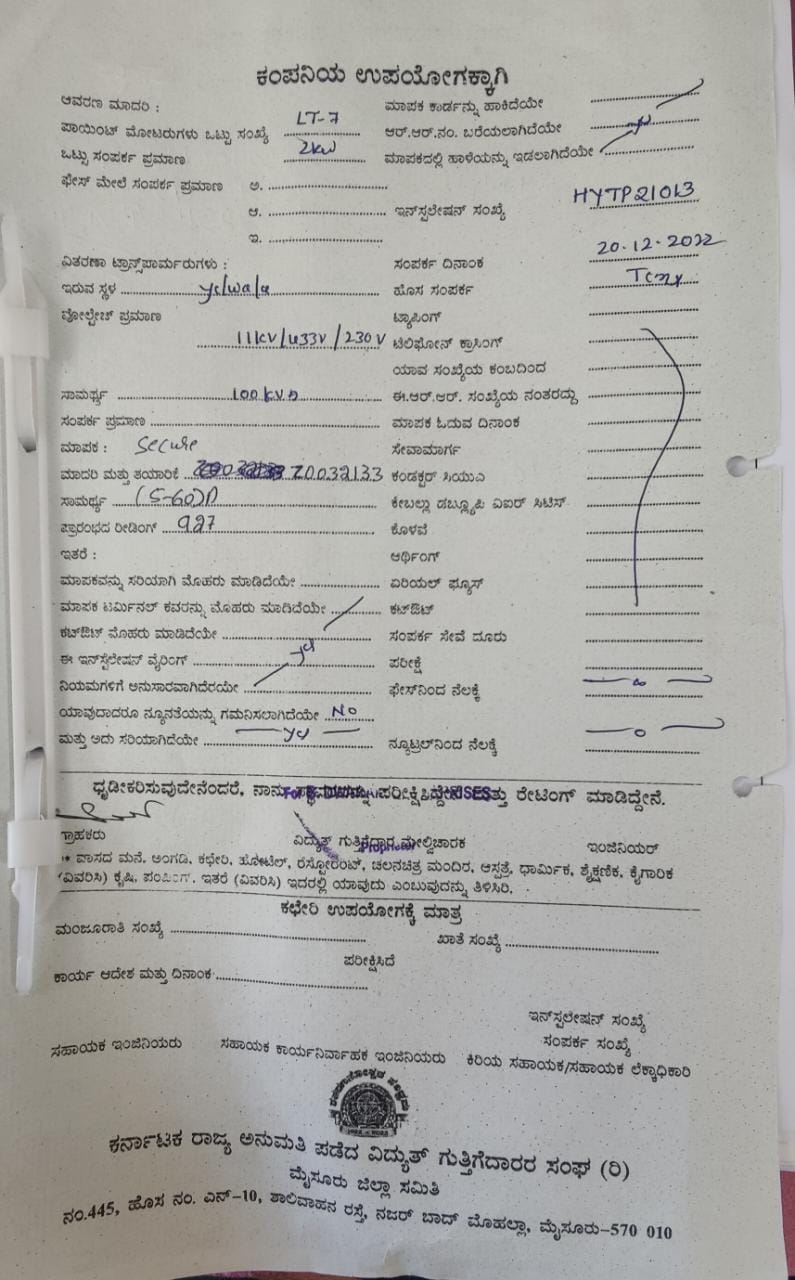 ಕಂಪನಿಯ ಉಪಯೋಗಕ್ಕಾಗಿ
ಆವರಣ ಮಾದರಿ : ಮಾಪಕ ಕಾರ್ಡನ್ನು ಹಾಕಿದೆಯೇ
ಪಾಯಿಂಟ್ ಮೋಟರುಗಳು ಒಟ್ಟು ಸಂಖ್ಯೆ LT-7 ಆರ್.ಆರ್.ನಂ. ಬರೆಯಲಾಗಿದೆಯೇ
ಒಟ್ಟು ಸಂಪರ್ಕ ಪ್ರಮಾಣ 2kw ಮಾಪಕದಲ್ಲಿ ಹಾಳೆಯನ್ನು ಇಡಲಾಗಿದೆಯೇ
ಫೇಸ್ ಮೇಲೆ ಸಂಪರ್ಕ ಪ್ರಮಾಣ ಅ.
ಆ. ಇನ್‌ಸ್ಟಲೇಷನ್ ಸಂಖ್ಯೆ HYTP21013
ಇ.
ವಿತರಣಾ ಟ್ರಾನ್ಸ್‌ಪಾರ್ಮರುಗಳು : ಸಂಪರ್ಕ ದಿನಾಂಕ 20-12-2022
ಇರುವ ಸ್ಥಳ ಹೊಸ ಸಂಪರ್ಕ
ವೋಲ್ಟೇಟ್ ಪ್ರಮಾಣ ಟ್ಯಾಪಿಂಗ್
11kv/433v/230v ಟೆಲಿಫೋನ್ ಕ್ರಾಸಿಂಗ್
ಯಾವ ಸಂಖ್ಯೆಯ ಕಂಬದಿಂದ
ಸಾಮರ್ಥ್ಯ 100 kva ಈ.ಆರ್.ಆರ್. ಸಂಖ್ಯೆಯ ನಂತರದ್ದು
ಸಂಪರ್ಕ ಪ್ರಮಾಣ ಮಾಪಕ ಓದುವ ದಿನಾಂಕ
ಮಾಪಕ : Secure ಸೇವಾಮಾರ್ಗ
ಮಾದರಿ ಮತ್ತು ತಯಾರಿಕೆ Z0032133 ಕಂಡಕ್ಟರ್ ಸಿಯುಎ
ಸಾಮರ್ಥ್ಯ (5-60)A ಕೇಬಲ್ಲು ಡಬ್ಲ್ಯೂಪಿ ಏಐರ್ ಸಿಟಿಸ್
ಪ್ರಾರಂಭದ ರೀಡಿಂಗ್ 927 ಕೊಳವೆ
ಇತರೆ : ಆರ್ಥಿಂಗ್
ಮಾಪಕವನ್ನು ಸರಿಯಾಗಿ ಮೊಹರು ಮಾಡಿದೆಯೇ ಏರಿಯಲ್ ಫ್ಯೂಸ್
ಮಾಪಕ ಟರ್ಮಿನಲ್ ಕವರನ್ನು ಮೊಹರು ಮಾಡಿದೆಯೇ ಕಟ್‌ಔಟ್
ಕಟ್‌ಔಟ್ ಮೊಹರು ಮಾಡಿದೆಯೇ ಸಂಪರ್ಕ ಸೇವೆ ದೂರು
ಈ ಇನ್‌ಸ್ಟಲೇಷನ್ ವೈರಿಂಗ್ ಪರೀಕ್ಷೆ
ನಿಯಮಗಳಿಗೆ ಅನುಸಾರವಾಗಿದೆರಯೇ ಫೇಸ್‌ನಿಂದ ನೆಲಕ್ಕೆ
ಯಾವುದಾದರೂ ನ್ಯೂನತೆಯನ್ನು ಗಮನಿಸಲಾಗಿದೆಯೇ No
ಮತ್ತು ಅದು ಸರಿಯಾಗಿದೆಯೇ ನ್ಯೂಟ್ರಲ್‌ನಿಂದ ನೆಲಕ್ಕೆ
ಧೃಡೀಕರಿಸುವುದೇನೆಂದರೆ, ನಾನು ಪರೀಕ್ಷಿಸಿದ್ದೇನೆ ಮತ್ತು ರೇಟಿಂಗ್ ಮಾಡಿದ್ದೇನೆ.
ಗ್ರಾಹಕರು ವಿದ್ಯುತ್ ಗುತ್ತಿಗೆದಾರ ಮೇಲ್ವಿಚಾರಕ ಇಂಜಿನಿಯರ್
Proprietor
ವಾಸದ ಮನೆ, ಅಂಗಡಿ, ಕಛೇರಿ, ಹೋಟೆಲ್, ರೆಸ್ಟೋರೆಂಟ್, ಚಲನಚಿತ್ರ ಮಂದಿರ, ಆಸ್ಪತ್ರೆ, ಧಾರ್ಮಿಕ, ಶೈಕ್ಷಣಿಕ, ಕೈಗಾರಿಕ
(ವಿವರಿಸಿ) ಕೃಷಿ, ಪಂಪಿಂಗ್, ಇತರೆ (ವಿವರಿಸಿ) ಇದರಲ್ಲಿ ಯಾವುದು ಎಂಬುವುದನ್ನು ತಿಳಿಸಿರಿ.
ಕಛೇರಿ ಉಪಯೋಗಕ್ಕೆ ಮಾತ್ರ
ಮಂಜೂರಾತಿ ಸಂಖ್ಯೆ ಖಾತೆ ಸಂಖ್ಯೆ
ಪರೀಕ್ಷಿಸಿದೆ
ಕಾರ್ಯ ಆದೇಶ ಮತ್ತು ದಿನಾಂಕ
ಇನ್‌ಸ್ಟಲೇಷನ್ ಸಂಖ್ಯೆ
ಸಂಪರ್ಕ ಸಂಖ್ಯೆ
ಸಹಾಯಕ ಇಂಜಿನಿಯರು ಸಹಾಯಕ ಕಾರ್ಯನಿರ್ವಾಹಕ ಇಂಜಿನಿಯರು ಕಿರಿಯ ಸಹಾಯಕ/ಸಹಾಯಕ ಲೆಕ್ಕಾಧಿಕಾರಿ
ಕರ್ನಾಟಕ ರಾಜ್ಯ ಅನುಮತಿ ಪಡೆದ ವಿದ್ಯುತ್ ಗುತ್ತಿಗೆದಾರರ ಸಂಘ (ರಿ)
ಮೈಸೂರು ಜಿಲ್ಲಾ ಸಮಿತಿ
ನಂ.445, ಹೊಸ ನಂ. ಎನ್-10, ಶಾಲಿವಾಹನ ರಸ್ತೆ, ನಜರ್ ಬಾದ್ ಮೊಹಲ್ಲಾ, ಮೈಸೂರು-570 010